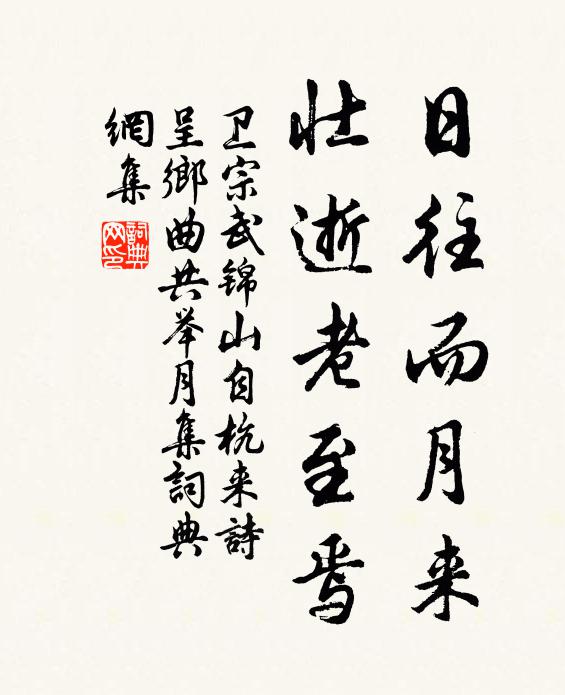 日往而月来
壮逝老至焉
卫宗武锦山自杭来詩
呈鄉曲共举月集詞典
網集
詞典
网印